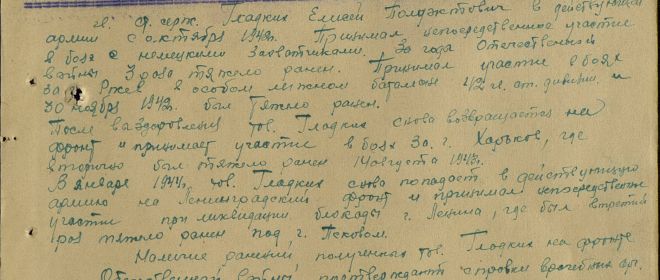 гв. ст. серж. Гладких Елисей Полуэктович в действующей
армии с октября 1942г. Принимал непосредственное участие
в боях с немецкими захватчиками. За года Отечественной
войны 3 раза тяжело ранен. Принимал участие в боях
за г. Ржев в особом лыжном батальоне 42 гв. ст. дивизии и
30 ноября 1942г. был тяжело ранен.
После выздоровления тов. Гладких снова возвращается на
фронт и принимает участие в боях за г. Харьков, где
вторично был тяжело ранен 14 августа 1943г.
В январе 1944г. тов. Гладких снова попадает в действующую
армию на Ленинградский фронт и принимал непосредственное
участие при ликвидации блокады г. Ленина, где был в третий
раз тяжело ранен под г. Псковом.
Наличие ранений полученных тов. Гладких на фронте
Отечественной войны, подтверждают справки врачебных